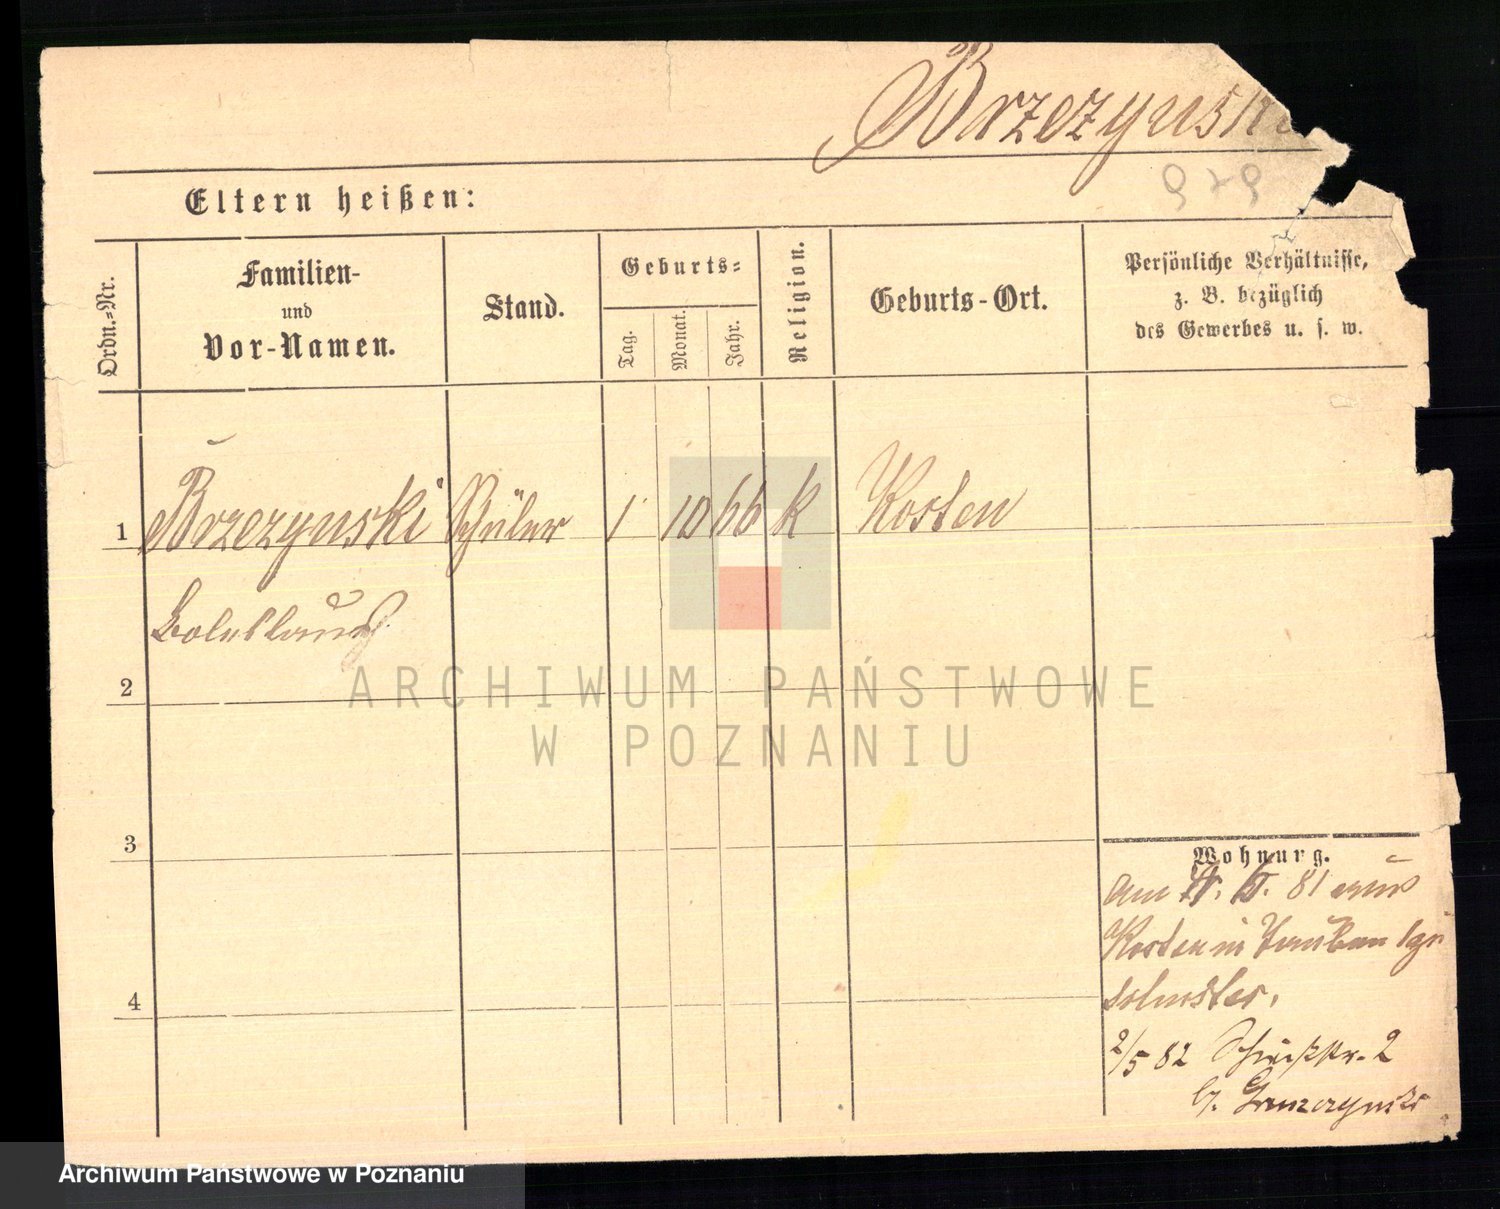 Brzezynski
929
Eltern heißen:
Ordn.-Nr.
Familien-
und
Vor-Namen.
Stand.
Geburts-
Tag.
Monat.
Jahr.
Religion.
Geburts-Ort.
Persönliche Verhältnisse,
z. B. bezüglich
des Gewerbes u. s. w.
1 Brzezynski Schüler 1 10 66 k Kosten
Boleslaus
2
ARCHIWUM PAŃSTWOWE
W POZNANIU
3
4
Wohnung.
am 81 aus
Kosten in
2/5 82 2
b.
Archiwum Państwowe w Poznaniu